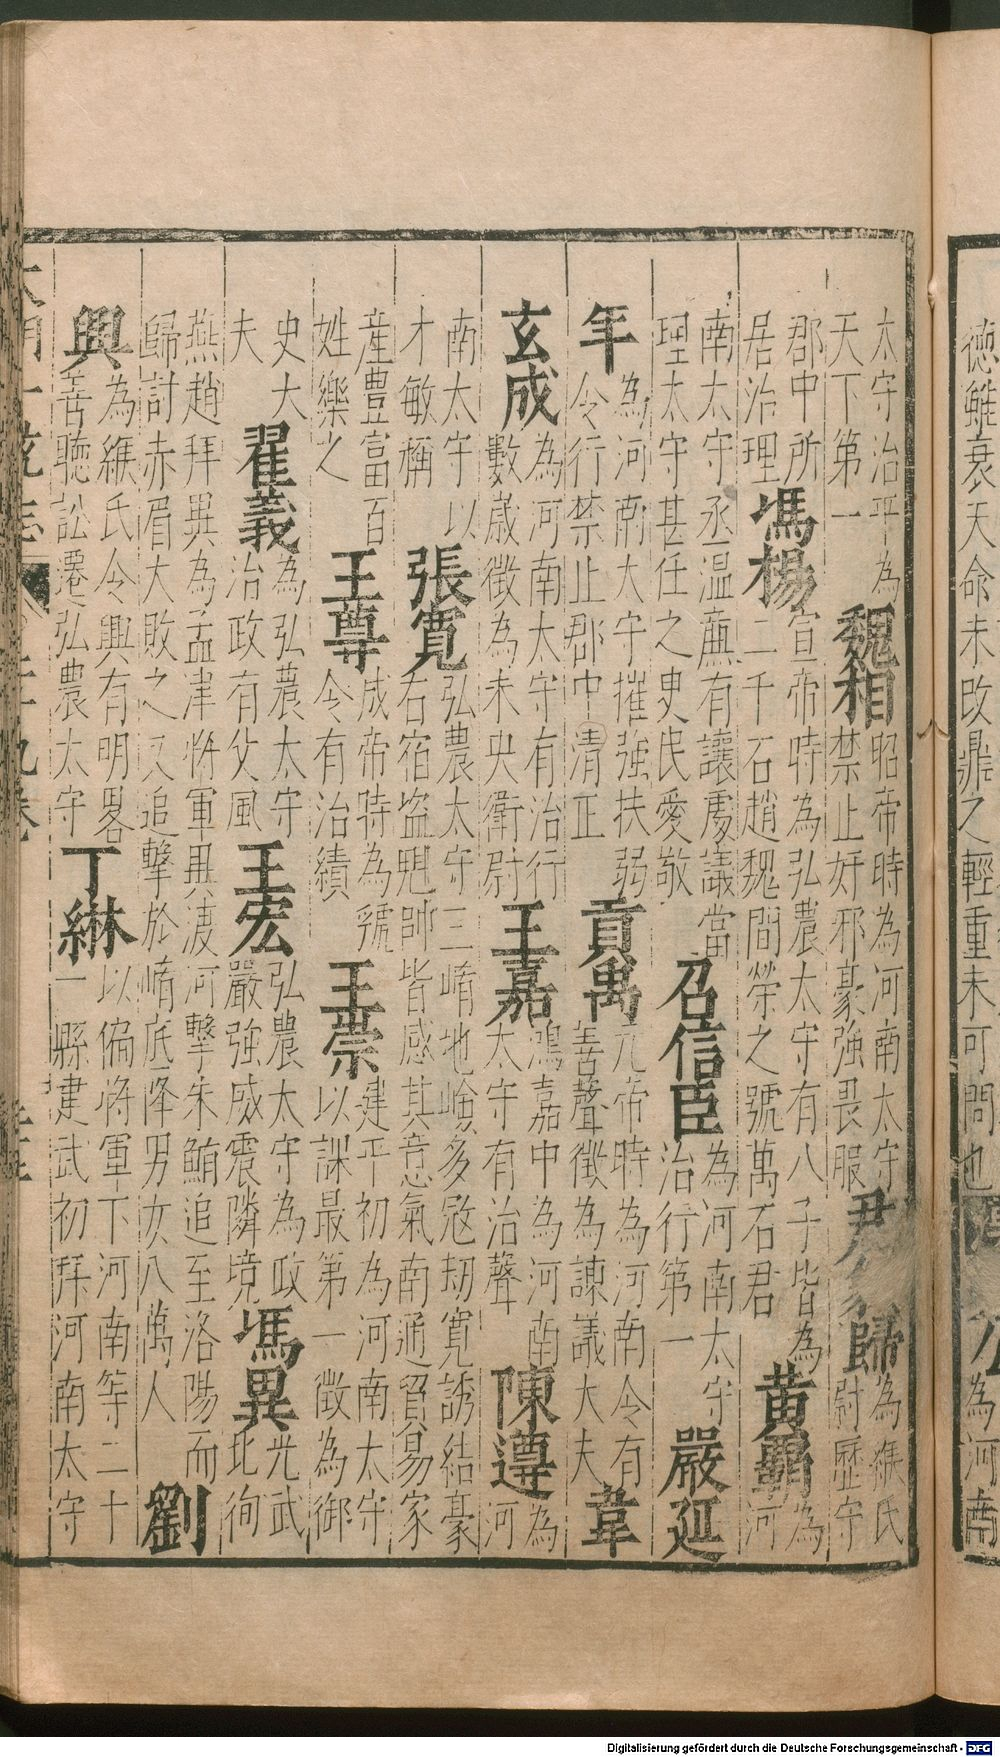 德雖衰天命未改鼎之輕重未可問也
公為河南
太守治平為天下第一魏相昭帝時為河南太守禁止奸邪豪強畏服尹翁歸為緱氏尉歷守
郡中所居治理馮楊宣帝時為弘農太守有八子皆為二千石趙魏間榮之號萬石君黄霸為河
南太守丞溫亷有讓處議當理太守甚任之吏民愛敬召信臣為河南太守治行第一嚴延
年為河南太守摧強扶弱令行禁止郡中清正貢禹元帝時為河南令有善聲徵為諫議大夫韋
玄成為河南太守有治行數歲徵為未央衛尉王嘉鴻嘉中為河南太守有治聲陳遵為河
南太守以才敏稱張寬弘農太守三崤地嶮多寇劫寛誘結豪右宿盜魁帥皆感其意氣南通貿易家
産豊富百姓樂之王尊成帝時為虢令有治績王崇建平初為河南太守以課最第一徵為御
史大夫翟義為弘農太守治政有父風王宏弘農太守為政嚴強威震隣境馮異光武北徇
燕趙拜異為孟津將軍異渡河擊朱鮪追至洛陽而歸討赤眉大敗之又追擊於崤底降男女八萬人劉
興為緱氏令興有明畧善聽訟遷弘農太守丁綝以偏將軍下河南等二十一縣建武初拜河南太守
大明一統志
二十九卷
Digitalisierung gefördert durch die Deutsche Forschungsgemeinschaft - DFG